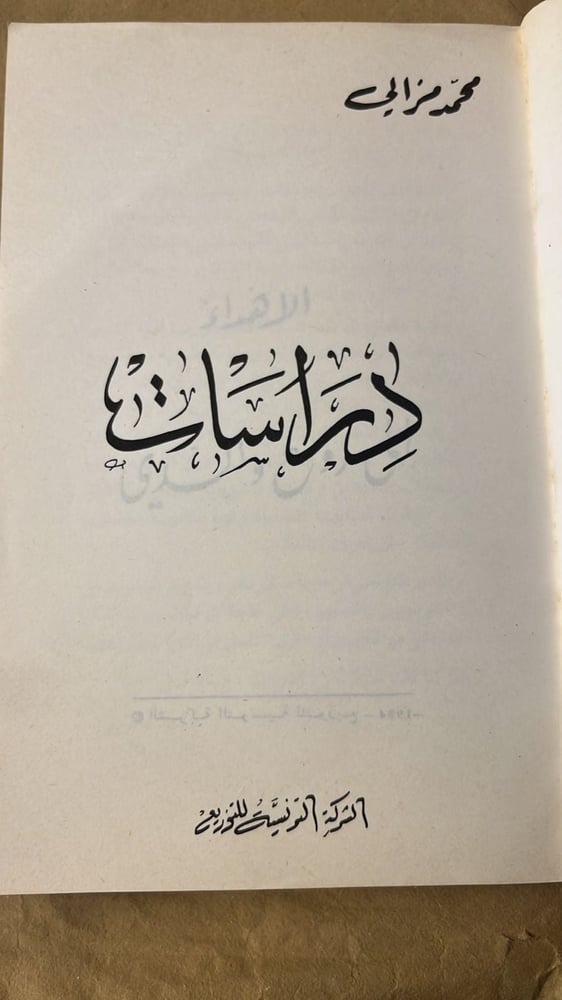 محمّد مزالي
الاهداء
دِرَاسَات
الشركة التونسيّة للتوزيع